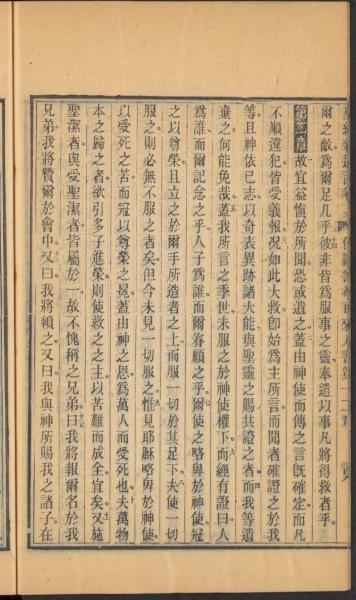 爾之敵爲爾足几乎彼非皆爲服事之靈奉遣以事凡將得救者乎
第二章 故宜益慎於所聞恐或遺之蓋由神使而傳之言旣確定而凡
不順違犯皆受義報況如此大救卽始爲主所言而聞者確證之於我
等且神依己志以奇表異跡諸大能與聖靈之賜共證之者而我等遺
棄之何能免哉蓋我所言之季世未服之於神使權下而經有證曰人
爲誰而爾記念之乎人子爲誰而爾眷顧之乎爾使之略卑於神使冠
之以尊榮且立之於爾手所造者之上而服一切於其足下夫使一切
服之則必無不服之者矣但今未見一切服之惟見耶穌略卑於神使
以受死之苦而冠以尊榮之冕蓋由神之恩爲萬人而受死也夫萬物
本之歸之者欲引多子進榮則使救之之主以苦難而成全宜矣又施
聖潔者與受聖潔者皆屬於一故不愧稱之兄弟曰我將報爾名於我
兄弟我將贊爾於會中又曰我將賴之又曰我與神所賜我之諸子在